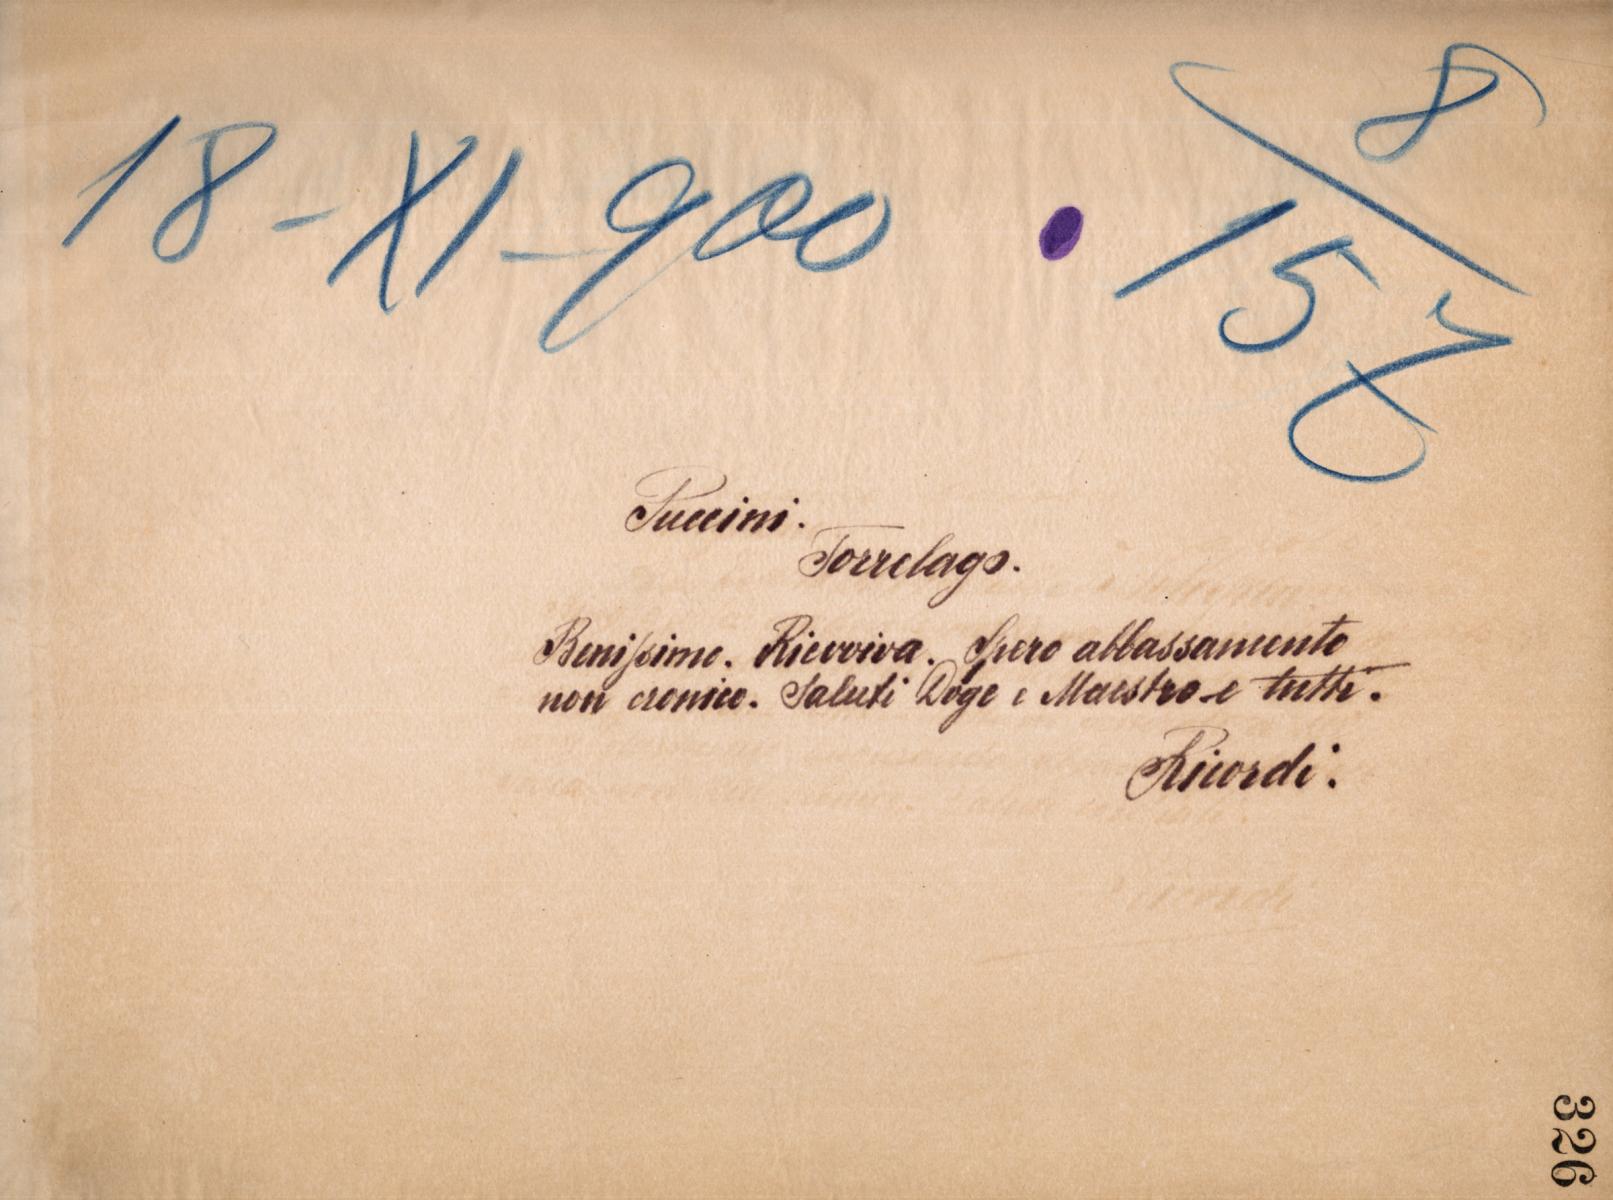 18-XI-900
8/157
Puccini.
Torrelago.
Benissimo. Rievviva. Spero abbassamento
non cronico. Saluti Doge e Maestro e tutti.
Ricordi.
326